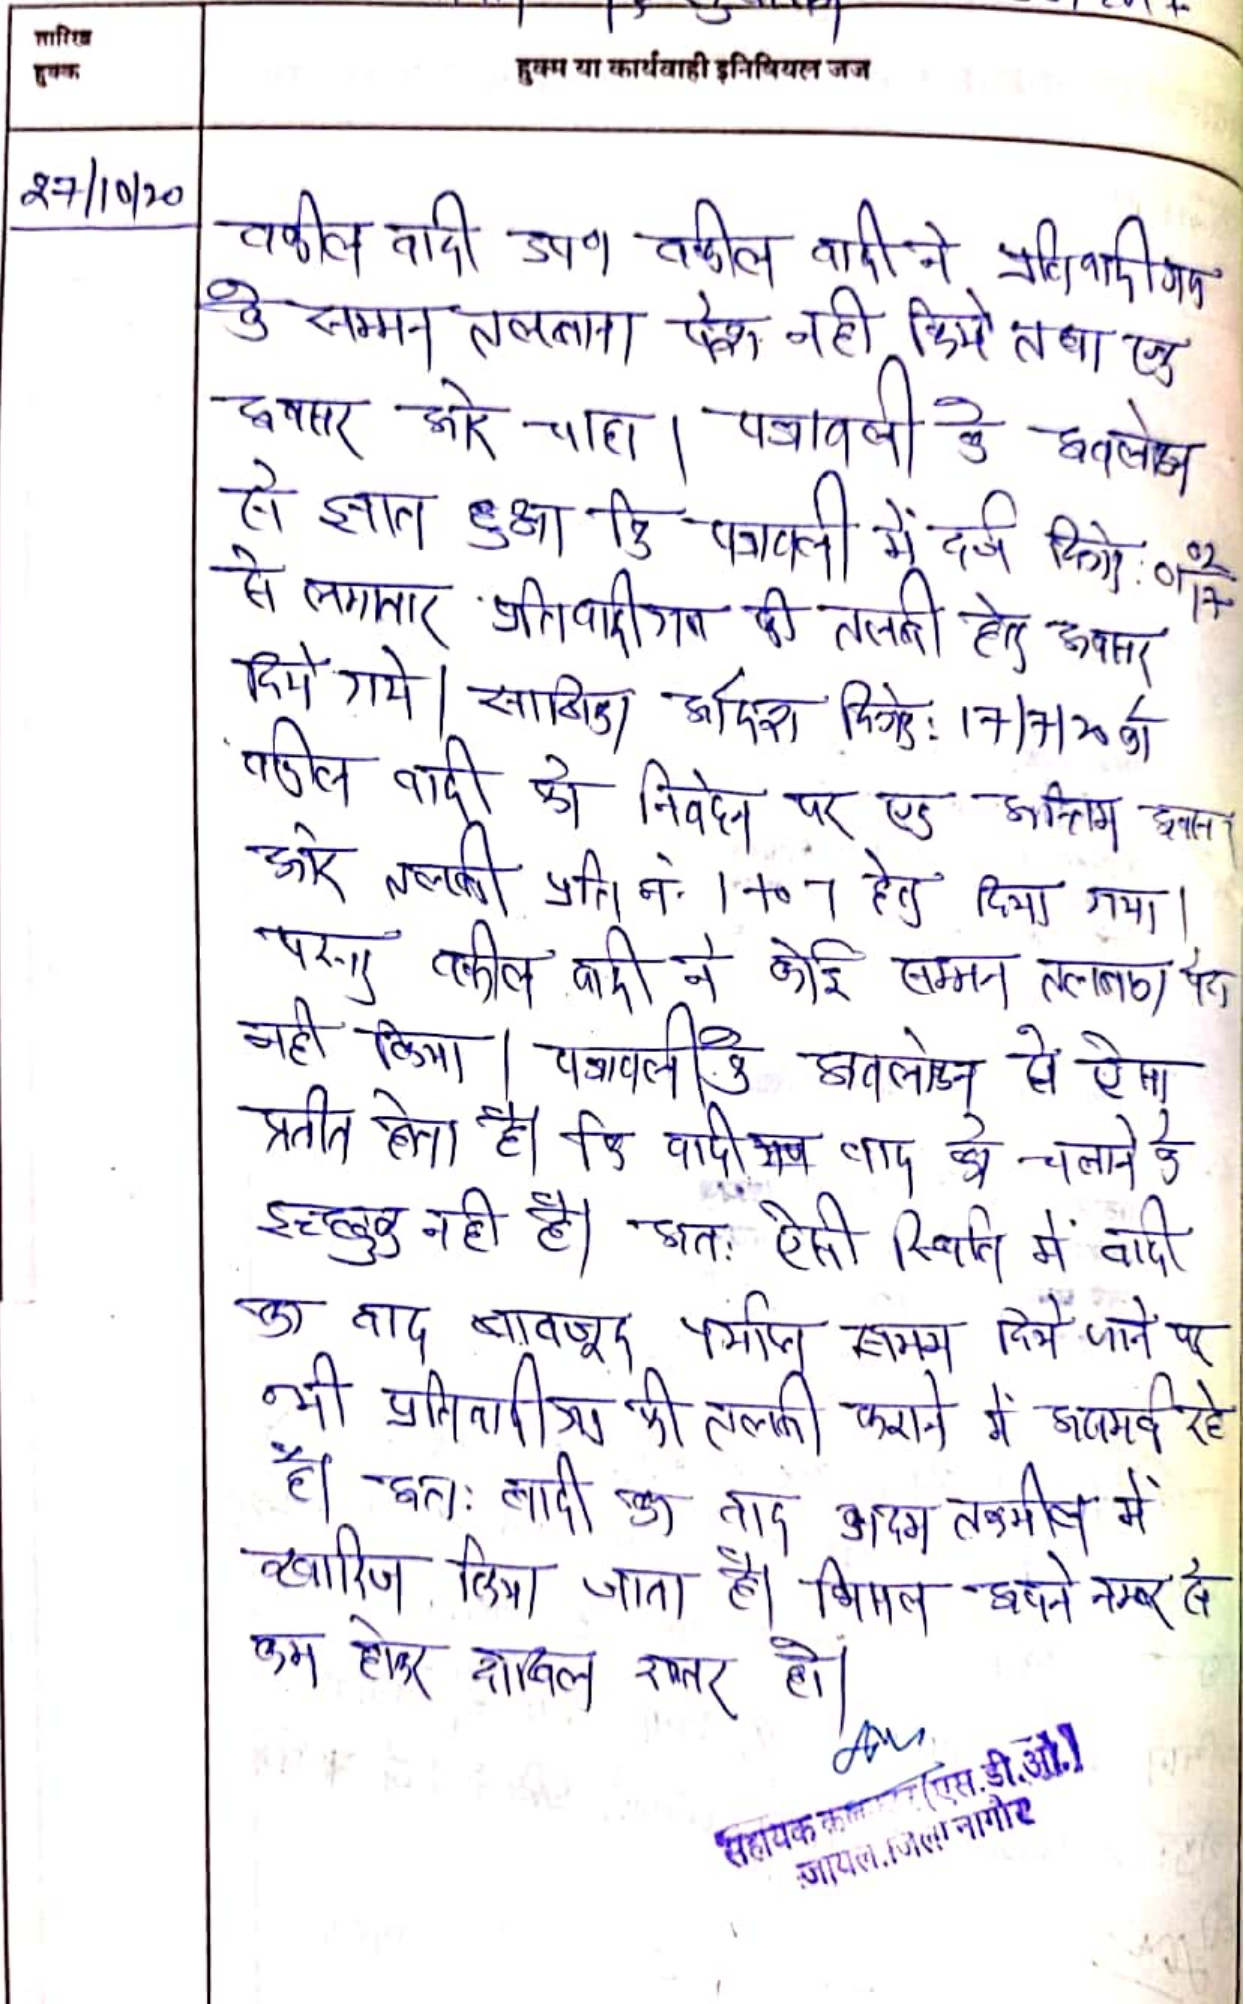 तारिख
हुक्म
हुक्म या कार्यवाही इनिषियल जज
27/10/20
वकील वादी उप० वकील वादी ने प्रतिवादीगण
के सम्मन तलबाना पेश नही किये तथा एक
अवसर और चाहा। पत्रावली के अवलोकन
से ज्ञात हुआ कि पत्रावली में दर्ज दिनांक:
से लगातार प्रतिवादीगण की तलबी हेतु अवसर
दिये गये। साबिक आदेश दिनांक: 17/7/20 को
वकील वादी के निवेदन पर एक अन्तिम अवसर
और तलबी प्रति नं. 1 to 7 हेतु दिया गया।
परन्तु वकील वादी ने कोई सम्मन तलबाना पेश
नही किया। पत्रावली के अवलोकन से ऐसा
प्रतीत होता है। कि वादीगण वाद को चलाने के
इच्छुक नही है। अतः ऐसी स्थिति में वादी
का वाद बावजूद पर्याप्त समय दिये जाने पर
भी प्रतिवादीगण की तलबी कराने में असमर्थ रहे
है। अतः वादी का वाद अदम तकमील में
खारिज किया जाता है। मिसल अपने नम्बर से
कम होकर दाखिल दफ्तर हो।
सहायक (एस.डी.ओ.)
जायल, जिला नागौर